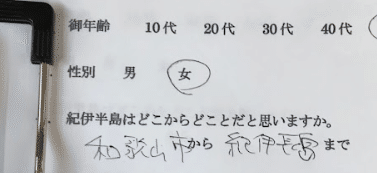 御年齢 10代 20代 30代 40代
性別 男 女
紀伊半島はどこからどことだと思いますか。
和歌山市から 紀伊長島まで